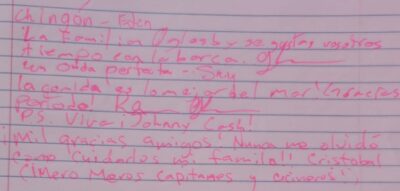 Chingón - Eden
"La Familia Oglesby se gustas vosotros
tiempo con la barca.
un onda perfecta - Sean
la comida es lo mejor del mar! Gracias
Periodo!
P.S. Viva Johnny Cash!
¡Mil gracias amigos! Nunca me olvido
como cuidados mi familia!! Cristobal
(Mero Meros capitanes y